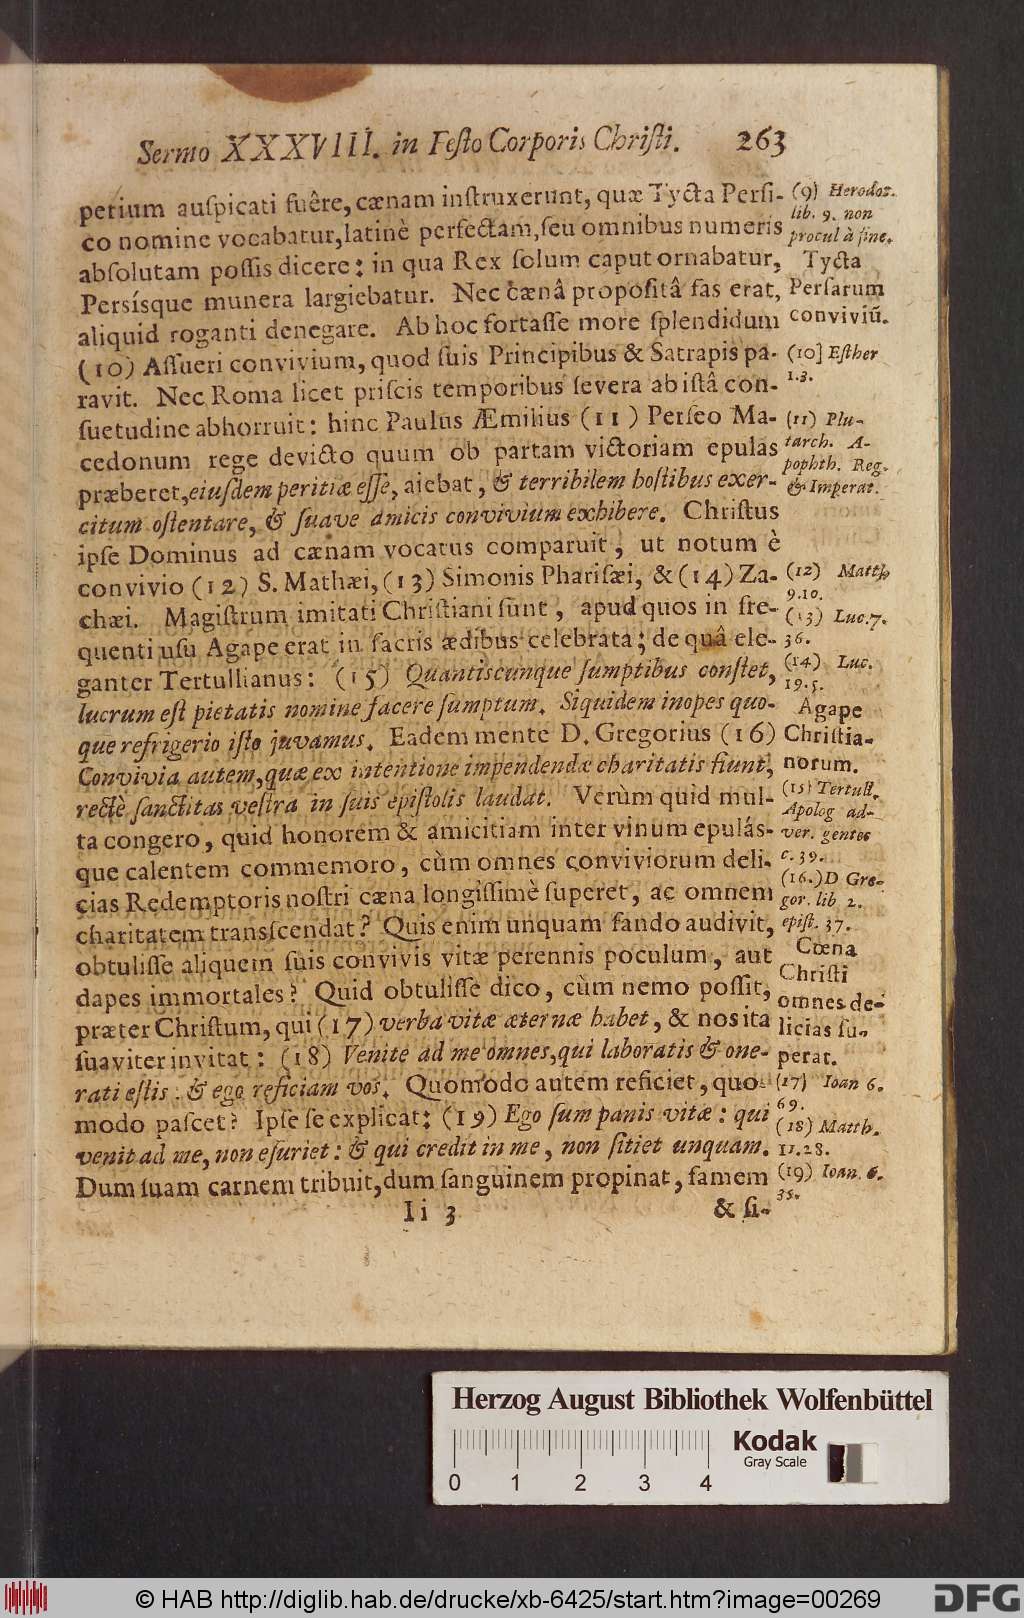 Sermo XXXVIII. in Feſto Corporis Chriſti. 263
perium auſpicati fuêre, cænam inſtruxerunt, quæ Tycta Perſi-
co nomine vocabatur, latinè perfectam, ſeu omnibus numeris
abſolutam poſſis dicere: in qua Rex ſolum caput ornabatur,
Persísque munera largiebatur. Nec cænâ propoſitâ fas erat,
aliquid roganti denegare. Ab hoc fortaſſe more ſplendidum
(10) Aſſueri convivium, quod ſuis Principibus & Satrapis pa-
ravit. Nec Roma licet priſcis temporibus ſevera ab iſtâ con-
ſuetudine abhorruit: hinc Paulus Æmilius (11) Perſeo Ma-
cedonum rege devicto quum ob partam victoriam epulas
præberet, eiuſdem peritiæ eſſe, aiebat, & terribilem hoſtibus exer-
citum oſtentare, & ſuave amicis convivium exhibere. Chriſtus
ipſe Dominus ad cænam vocatus comparuit, ut notum è
convivio (12) S. Mathæi, (13) Simonis Phariſæi, & (14) Za-
chæi. Magiſtrum imitati Chriſtiani ſunt, apud quos in fre-
quenti uſu Agape erat in ſacris ædibus celebrata; de quâ ele-
ganter Tertullianus: (15) Quantiscunque ſumptibus conſtet,
lucrum eſt pietatis nomine facere ſumptum. Siquidem inopes quo-
que refrigerio iſto juvamus. Eadem mente D. Gregorius (16)
Convivia autem, quæ ex intentione impendendæ charitatis fiunt,
rectè ſanctitas veſtra in ſuis epiſtolis laudat. Verùm quid mul-
ta congero, quid honorem & amicitiam inter vinum epulás-
que calentem commemoro, cùm omnes conviviorum deli-
cias Redemptoris noſtri cæna longiſſimè ſuperet, ac omnem
charitatem transſcendat? Quis enim unquam fando audivit,
obtuliſſe aliquem ſuis convivis vitæ perennis poculum, aut
dapes immortales? Quid obtuliſſe dico, cùm nemo poſſit,
præter Chriſtum, qui (17) verba vitæ æternæ habet, & nos ita
ſuaviter invitat: (18) Venite ad me omnes, qui laboratis & one-
rati eſtis: & ego reficiam vos. Quomodo autem reficiet, quo-
modo paſcet? Ipſe ſe explicat: (19) Ego ſum panis vitæ: qui
venit ad me, non eſuriet: & qui credit in me, non ſitiet unquam.
Dum ſuam carnem tribuit, dum ſanguinem propinat, famem
Ii 3 & ſi-
(9) Herodot.
lib. 9. non
procul à fine.
Tycta
Perſarum
conviviũ.
(10] Eſther
1.3.
(11) Plu-
tarch. A-
pophth. Reg.
& Imperat.
(12) Matth.
9.10.
(13) Luc. 7.
36.
(14) Luc.
19.5.
Agape
Chriſtia-
norum.
(15) Tertull.
Apolog ad-
ver. gentes
c. 39.
(16.) D Gre-
gor. lib 2.
epiſt. 37.
Cœna
Chriſti
omnes de-
licias ſu-
perat.
(17) Ioan 6.
69.
(18) Matth.
11.28.
(19) Ioan. 6.
35.
Herzog August Bibliothek Wolfenbüttel
Kodak
Gray Scale
0 1 2 3 4
© HAB http://diglib.hab.de/drucke/xb-6425/start.htm?image=00269
DFG